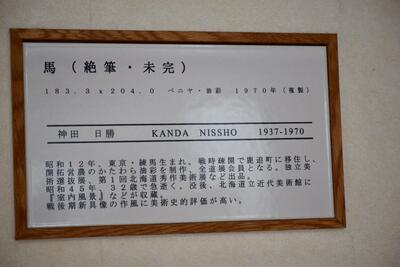 馬（絶筆・未完）
183.3×204.0 ベニヤ・油彩 1970年（複製）
神田 日勝 KANDA NISSHO 1937-1970
昭和12年、東京・練馬生まれ。戦時疎開で鹿追町に移住し、
開拓営農のかたわら油彩を制作、全道展会員となる。独立美
術選抜展、第1回北海道秀作美術展など出品。
昭和45年、32歳で急逝く。没後、北海道立近代美術館に
『室内風景』などが収蔵。
戦後期新具像の作風に美術史的評価が高い。